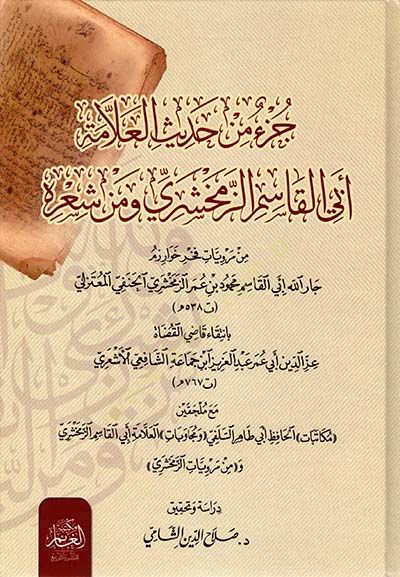 جُزْءٌ مِنْ حَدِيثِ العَلَّامَةِ
أَبِي القَاسِمِ الزَّمَخْشَرِيِّ وَمِنْ شِعْرِهِ
مِنْ مَرْوِيَّاتِ فَخْرِ خَوَارِزْمَ
جَارِ اللهِ أَبِي القَاسِمِ مَحْمُودِ بْنِ عُمَرَ الزَّمَخْشَرِيِّ الحَنَفِيِّ المُعْتَزِلِيِّ
(ت٥٣٨هـ)
بِانْتِقَاءِ قَاضِي القُضَاةِ
عِزِّ الدِّينِ أَبِي عُمَرَ عَبْدِ العَزِيزِ ابْنِ جَمَاعَةَ الشَّافِعِيِّ الأَشْعَرِيِّ
(ت٧٦٧هـ)
مَعَ مُلْحَقَيْنِ
(مُكَاتَبَاتِ) الحَافِظِ أَبِي طَاهِرٍ السِّلَفِيِّ (وَمُجَاوَبَاتِ) العَلَّامَةِ أَبِي القَاسِمِ الزَّمَخْشَرِيِّ
وَ(مِنْ مَرْوِيَّاتِ الزَّمَخْشَرِيِّ)
دِرَاسَة وَتَحْقِيق
د. صَلَاحِ الدِّينِ الشَّامِيِّ
مكتبة
الغانم
للنشر والتوزيع